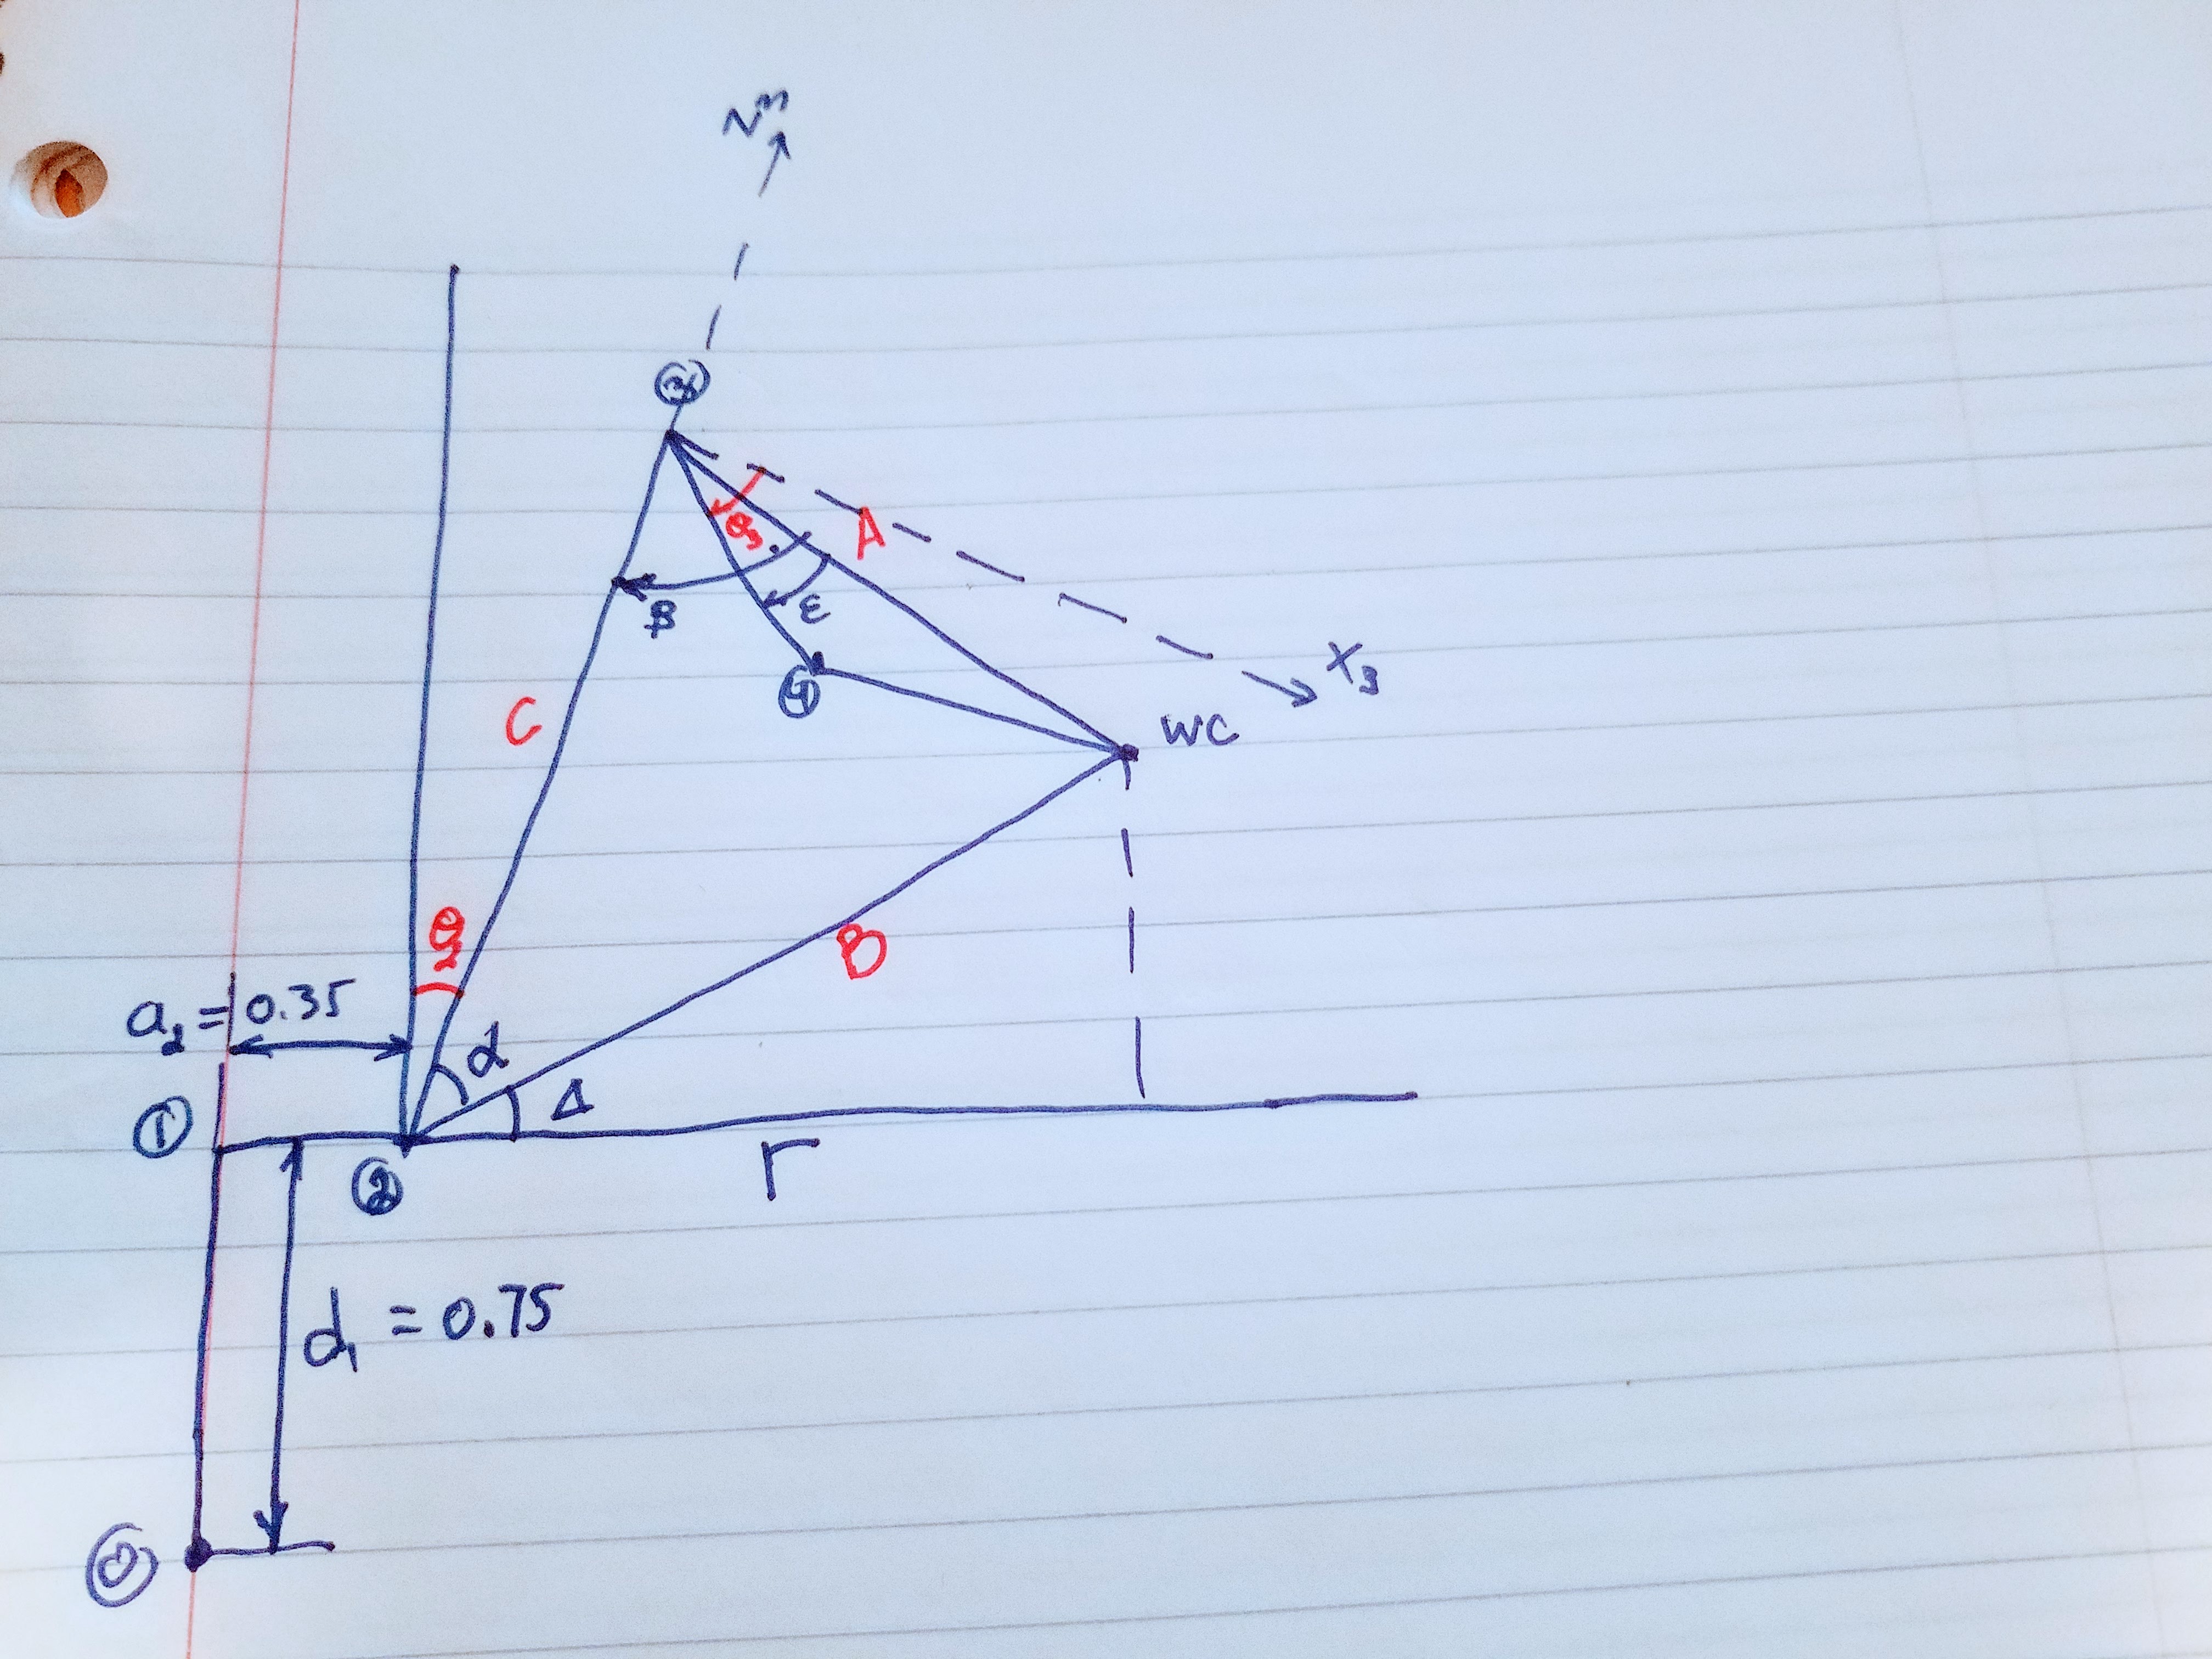 Z₃
③
A
θ₃
β
ε
X₃
④
WC
C
θ₂
B
a₂ = 0.35
α
Δ
①
②
r
d₁ = 0.75
⓪